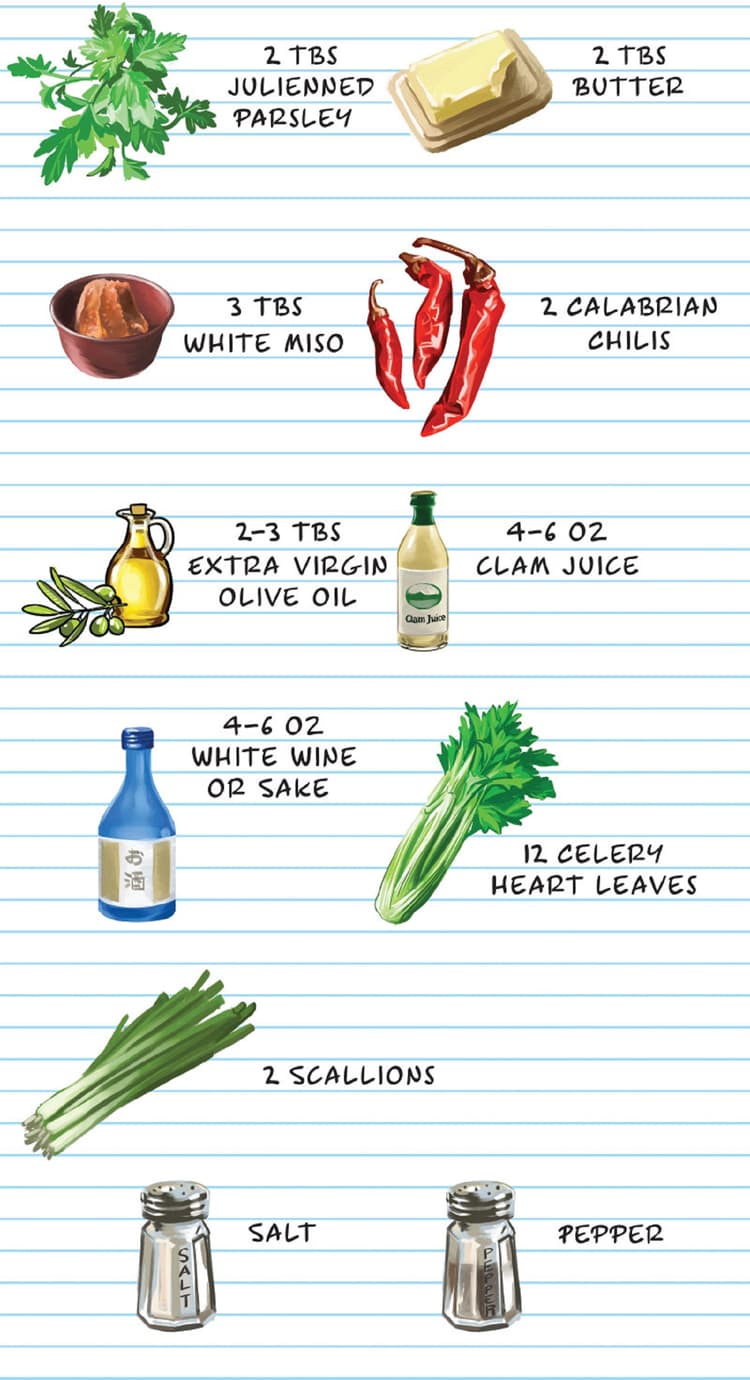 2 TBS
JULIENNED
PARSLEY
2 TBS
BUTTER
3 TBS
WHITE MISO
2 CALABRIAN
CHILIS
2-3 TBS
EXTRA VIRGIN
OLIVE OIL
Clam Juice
4-6 OZ
CLAM JUICE
4-6 OZ
WHITE WINE
OR SAKE
12 CELERY
HEART LEAVES
2 SCALLIONS
SALT
SALT
PEPPER
PEPPER